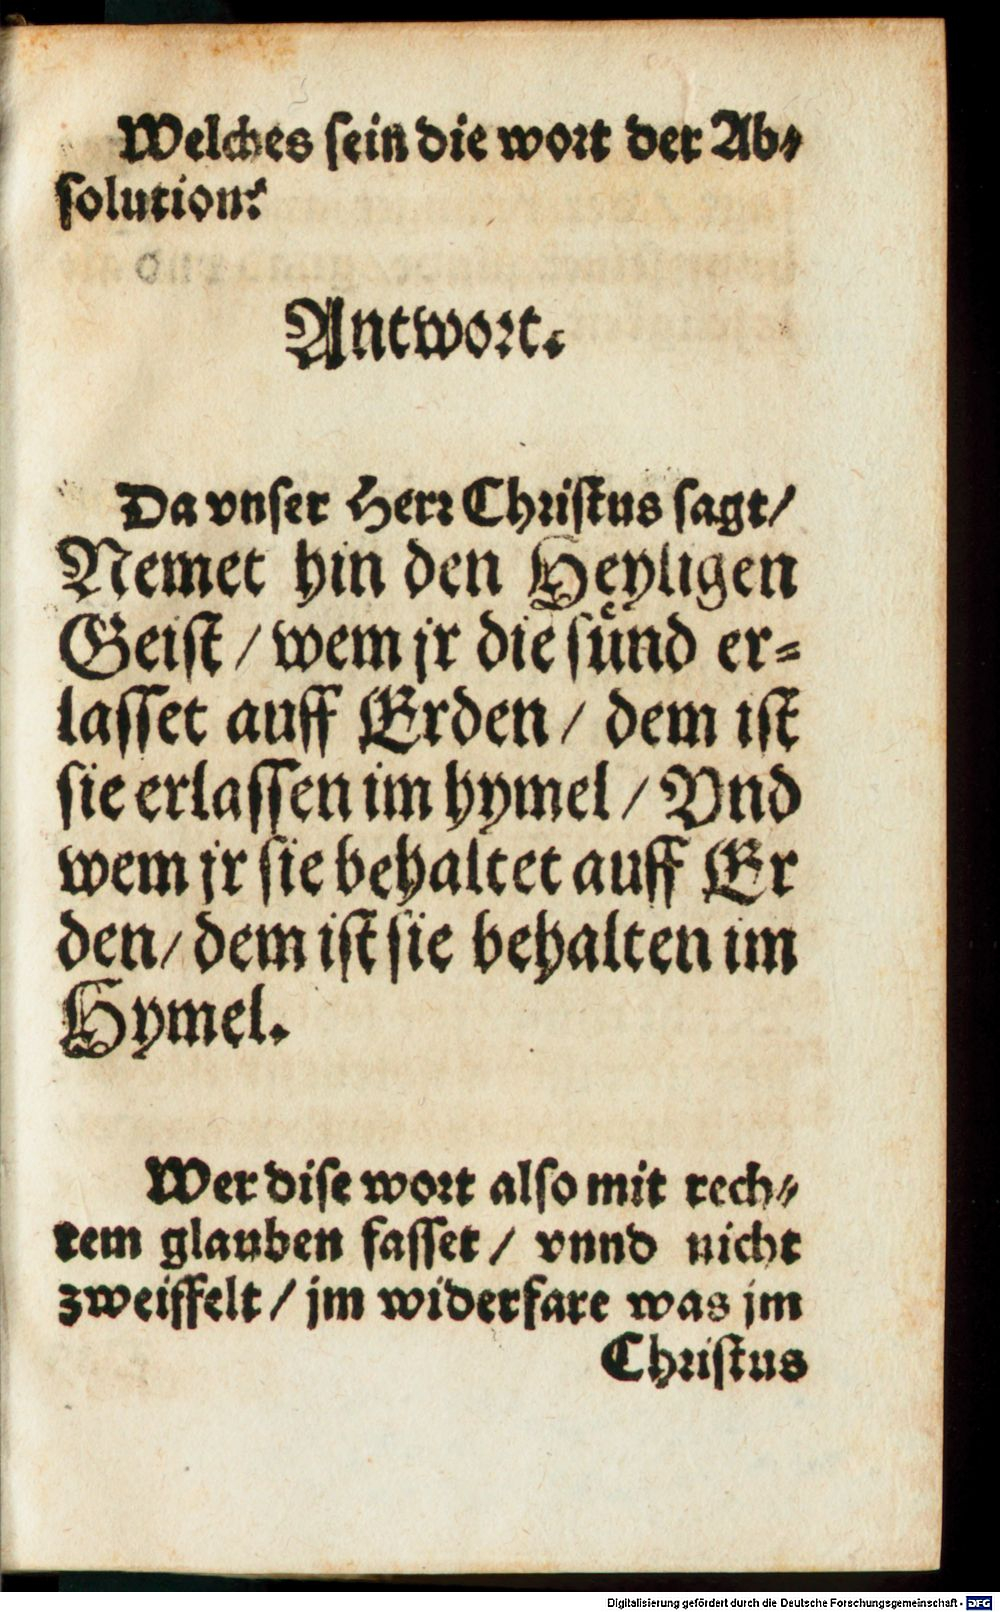 Welches sein die wort der Ab⸗
solution?
Antwort.
Da vnser Herr Christus sagt/
Nemet hin den Heyligen
Geist / wem jr die suͤnd er⸗
lasset auff Erden / dem ist
sie erlassen im hymel / Vnd
wem jr sie behaltet auff Er
den/ dem ist sie behalten im
Hymel.
Wer dise wort also mit rech⸗
tem glauben fasset / vnnd nicht
zweiffelt / jm widerfare was jm
Christus
Digitalisierung gefördert durch die Deutsche Forschungsgemeinschaft - DFG